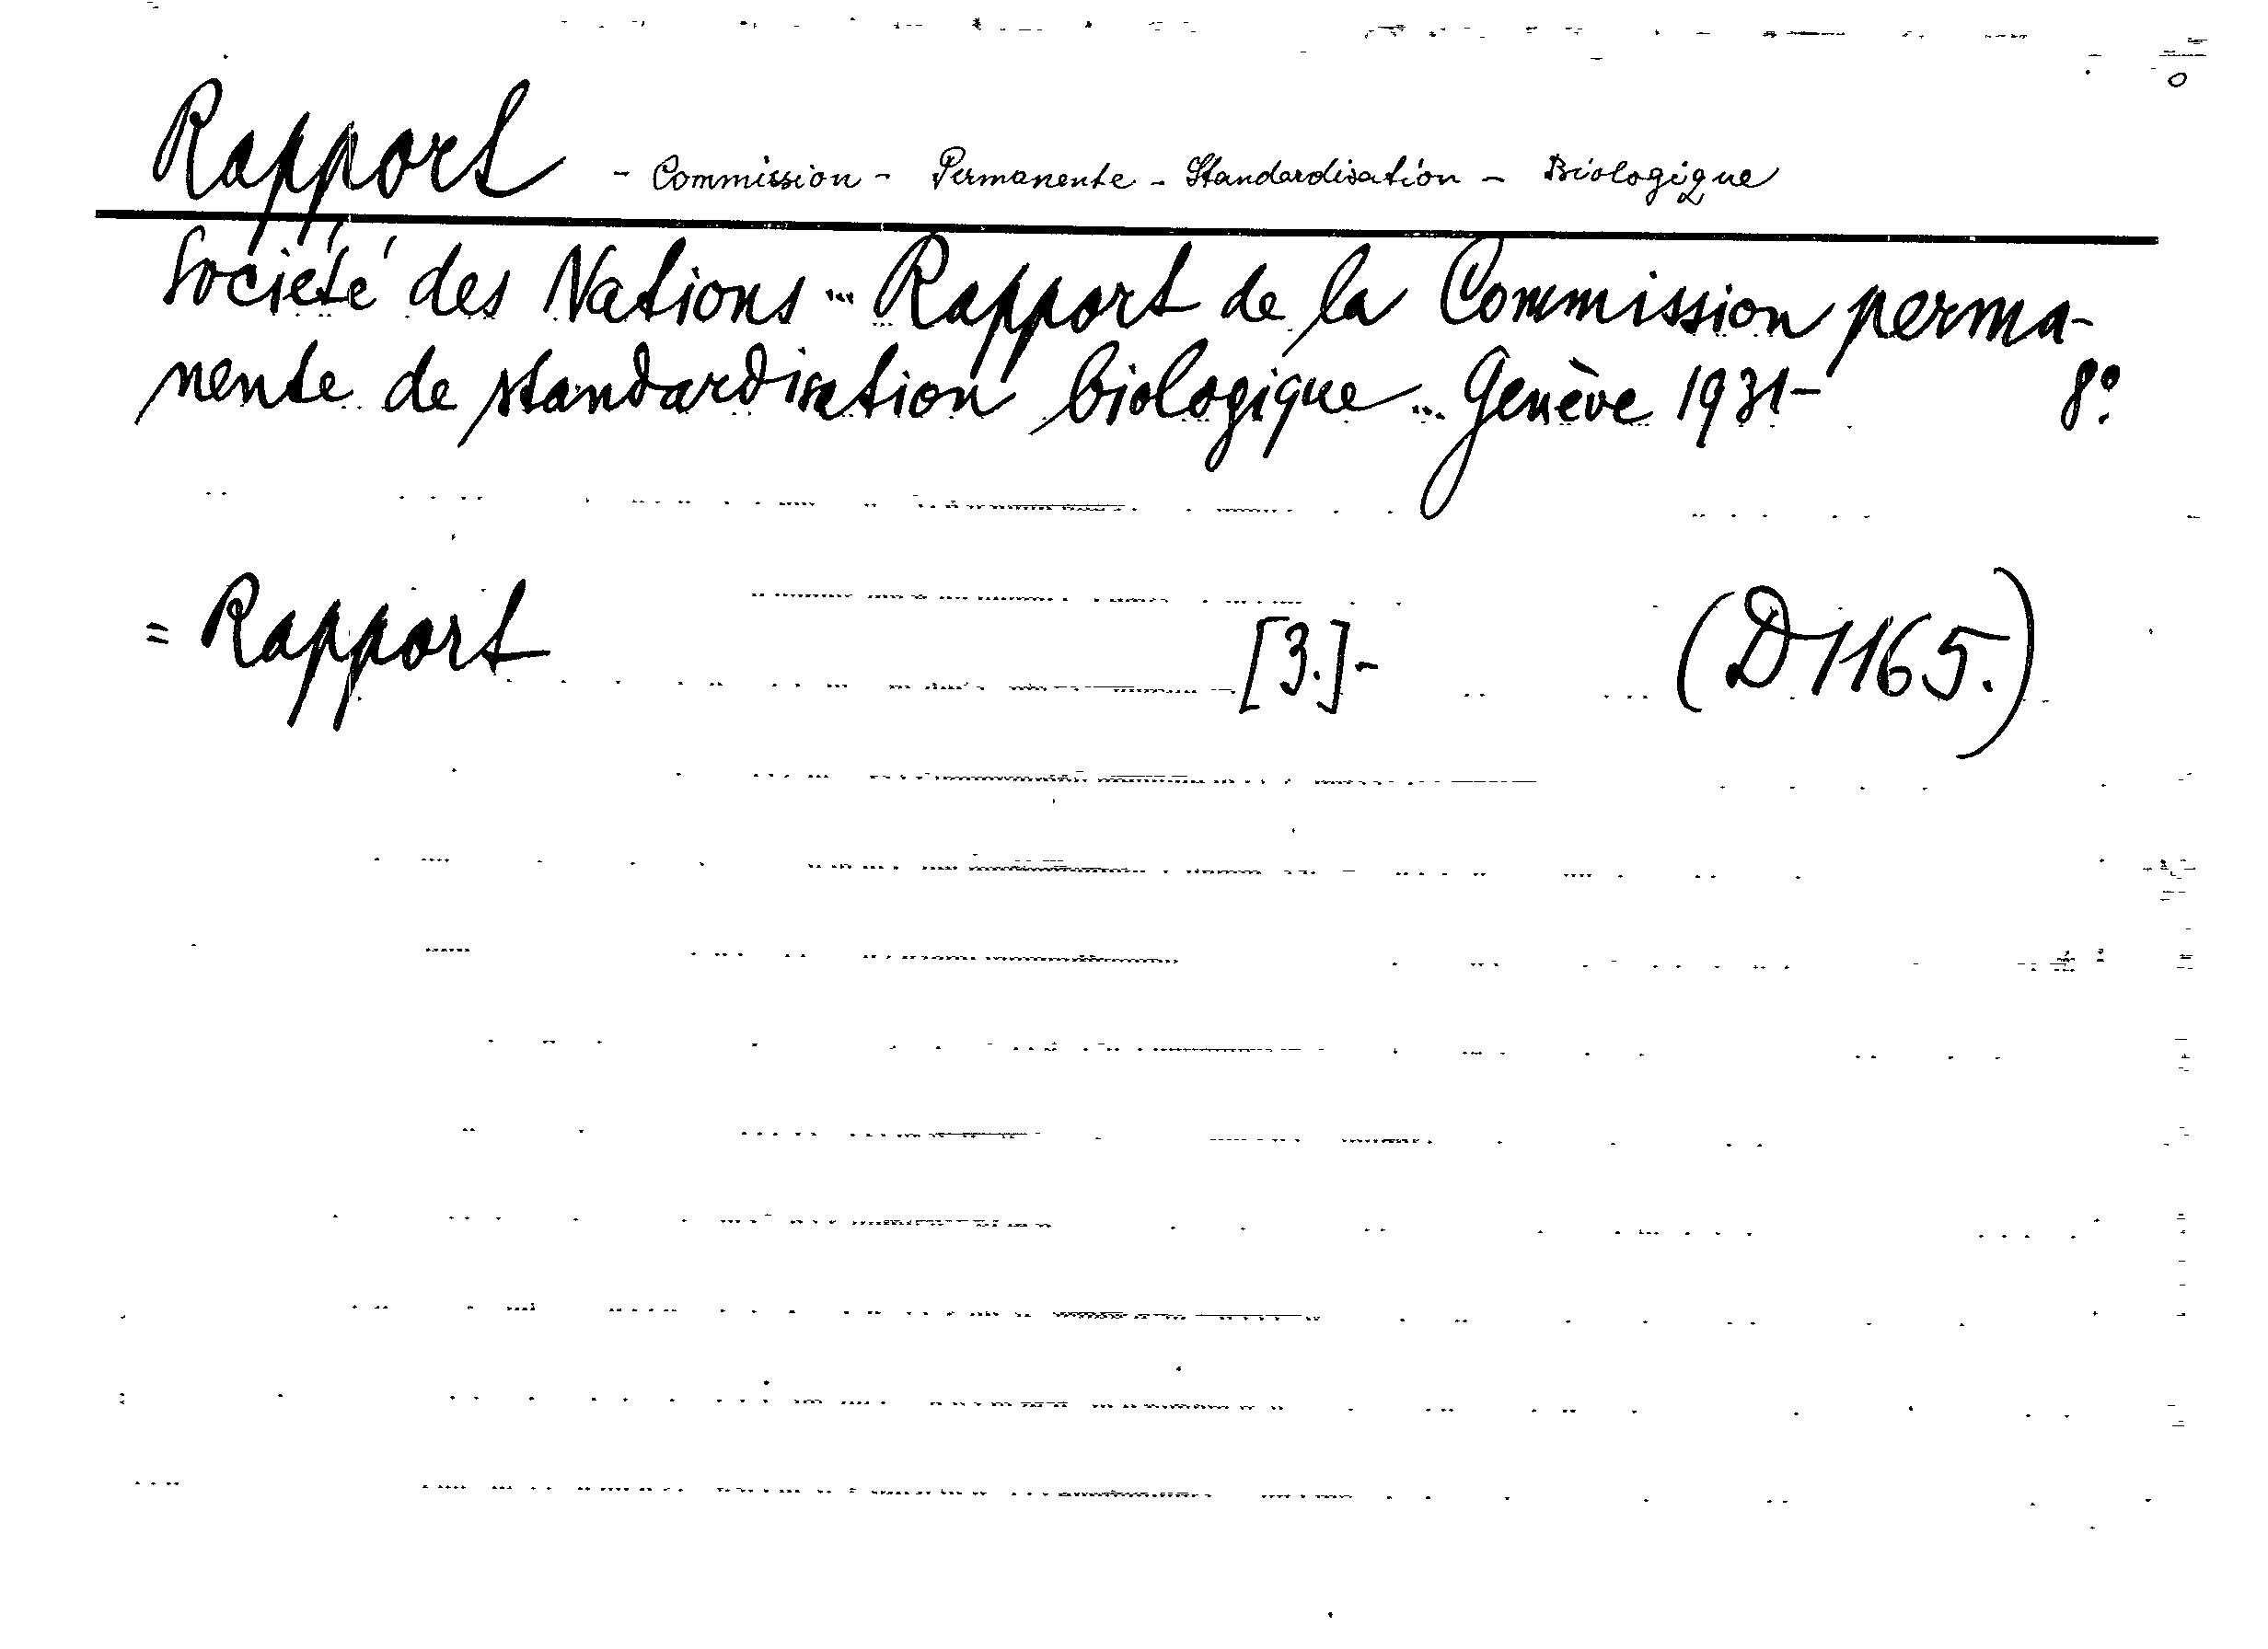 Rapport - Commission - Permanente - Standardisation - Biologique
Société des Nations ... Rapport de la Commission perma-
nente de standardisation biologique ... Genève 1931- 8º
= Rapport [3.]- (D1165.)